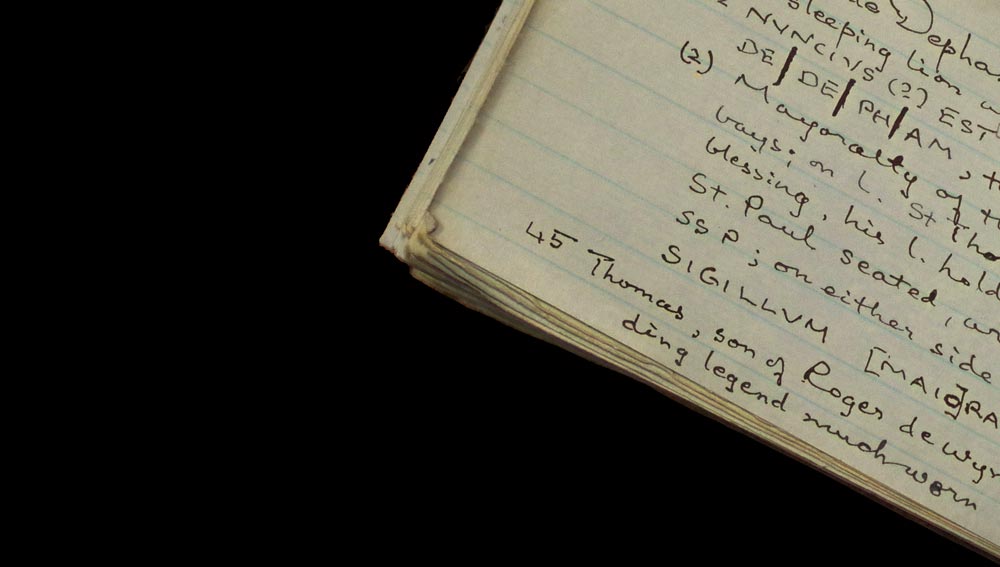 de Depha
sleeping lion
NVNCIVS (?) EST
DE/DE/PH/AM, t
(2) Mayoralty of t
bays; on l. St Tho
blessing, his l. hold
St. Paul seated, ar
SSP; on either side
SIGILLVM [MAIO]RA
45 Thomas, son of Roger de Wyn
ding legend much worn